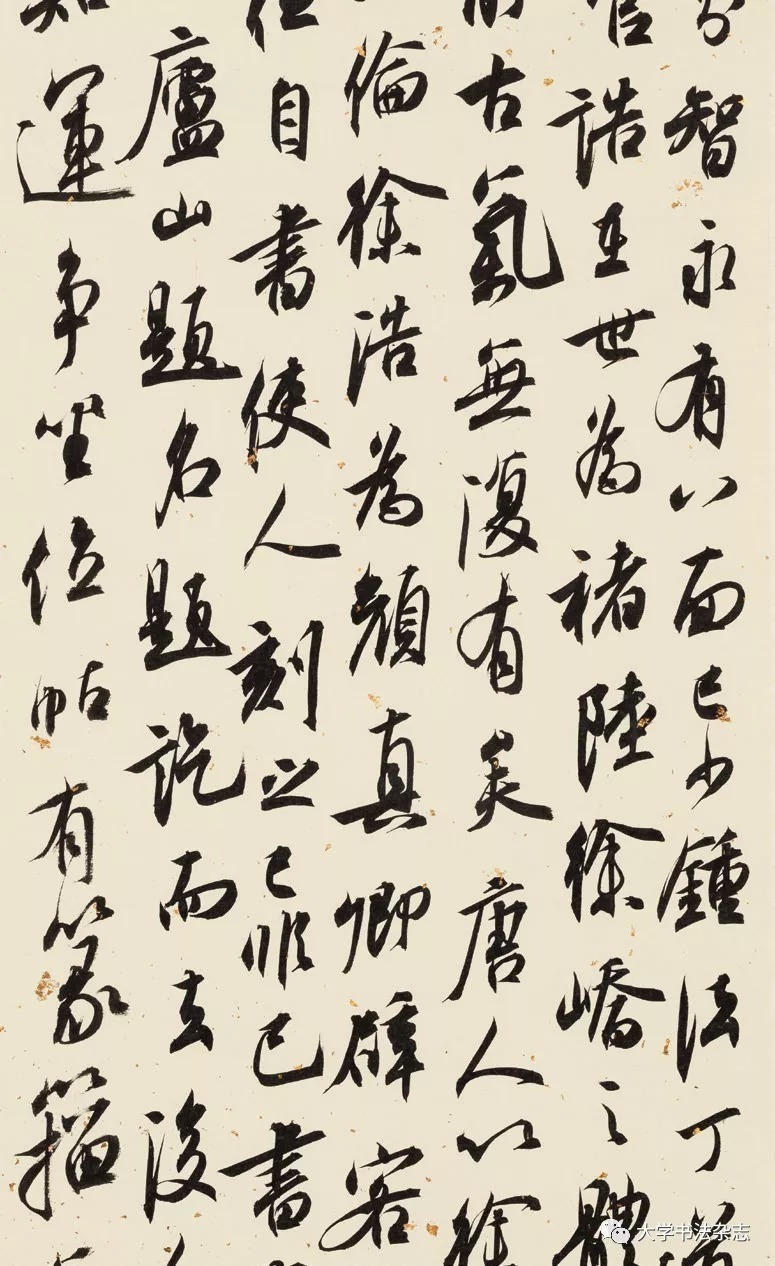 智永有八面已少鍾法丁道
官誥在世為褚陸徐嶠之體
前古氣無復有矣唐人以徐
倫徐浩為顏真卿辟客
但自書使人刻之已非己書
廬山題名題訖而去後
知運爭坐位帖有篆籀
大学书法杂志